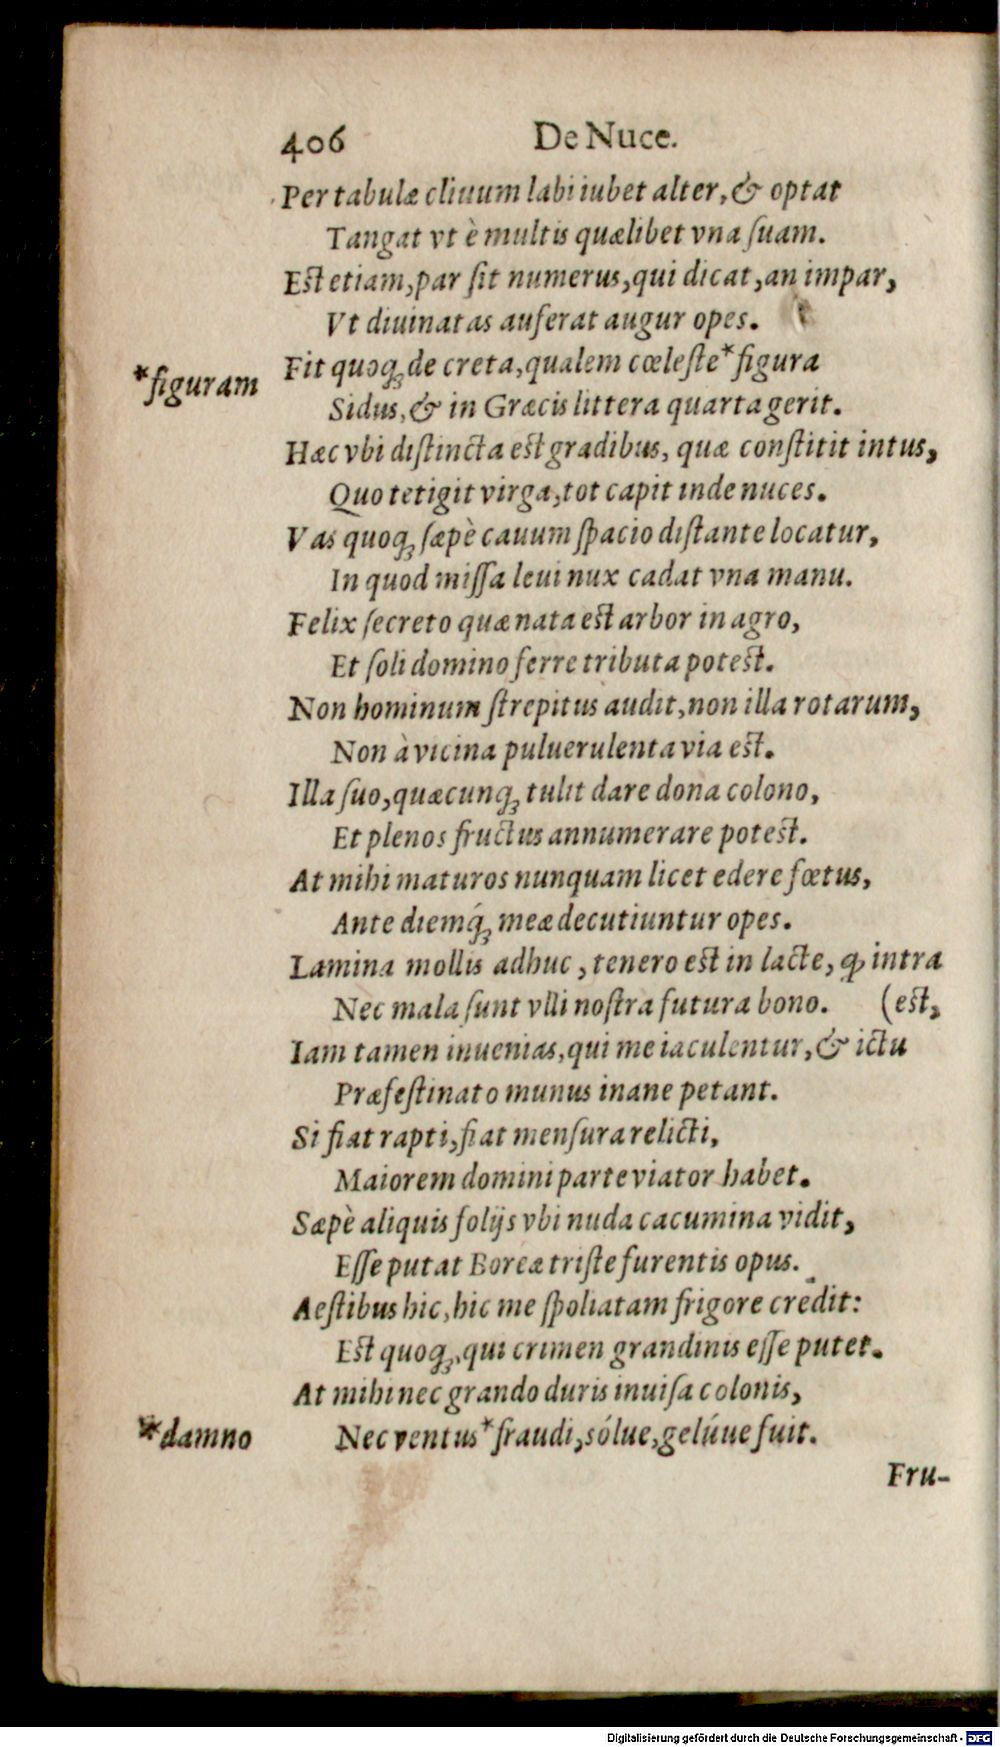 406 De Nuce.
Per tabulæ cliuum labi iubet alter, & optat
Tangat vt è multis quælibet vna ſuam.
Est etiam, par ſit numerus, qui dicat, an impar,
Vt diuinatas auferat augur opes.
Fit quoq; de creta, qualem cœleſte *figura
*figuram
Sidus, & in Græcis littera quarta gerit.
Hæc vbi diſtincta est gradibus, quæ conſtitit intus,
Quo tetigit virga, tot capit inde nuces.
Vas quoq; ſæpè cauum ſpacio diſtante locatur,
In quod miſſa leui nux cadat vna manu.
Felix ſecreto quæ nata est arbor in agro,
Et ſoli domino ferre tributa potest.
Non hominum ſtrepitus audit, non illa rotarum,
Non à vicina puluerulenta via est.
Illa ſuo, quæcunq; tulit dare dona colono,
Et plenos fructus annumerare potest.
At mihi maturos nunquam licet edere fœtus,
Ante diemq́; meæ decutiuntur opes.
Lamina mollis adhuc, tenero est in lacte, ꝙ intra
Nec mala ſunt vlli noſtra futura bono. (est,
Iam tamen inuenias, qui me iaculentur, & ictu
Præfeſtinato munus inane petant.
Si fiat rapti, fiat menſura relicti,
Maiorem domini parte viator habet.
Sæpè aliquis folijs vbi nuda cacumina vidit,
Eſſe putat Boreæ triſte furentis opus.
Aeſtibus hic, hic me ſpoliatam frigore credit:
Est quoq;, qui crimen grandinis eſſe putet.
At mihi nec grando duris inuiſa colonis,
Nec ventus *fraudi, sólue, gelúue fuit.
*damno
Fru-
Digitalisierung gefördert durch die Deutsche Forschungsgemeinschaft - DFG